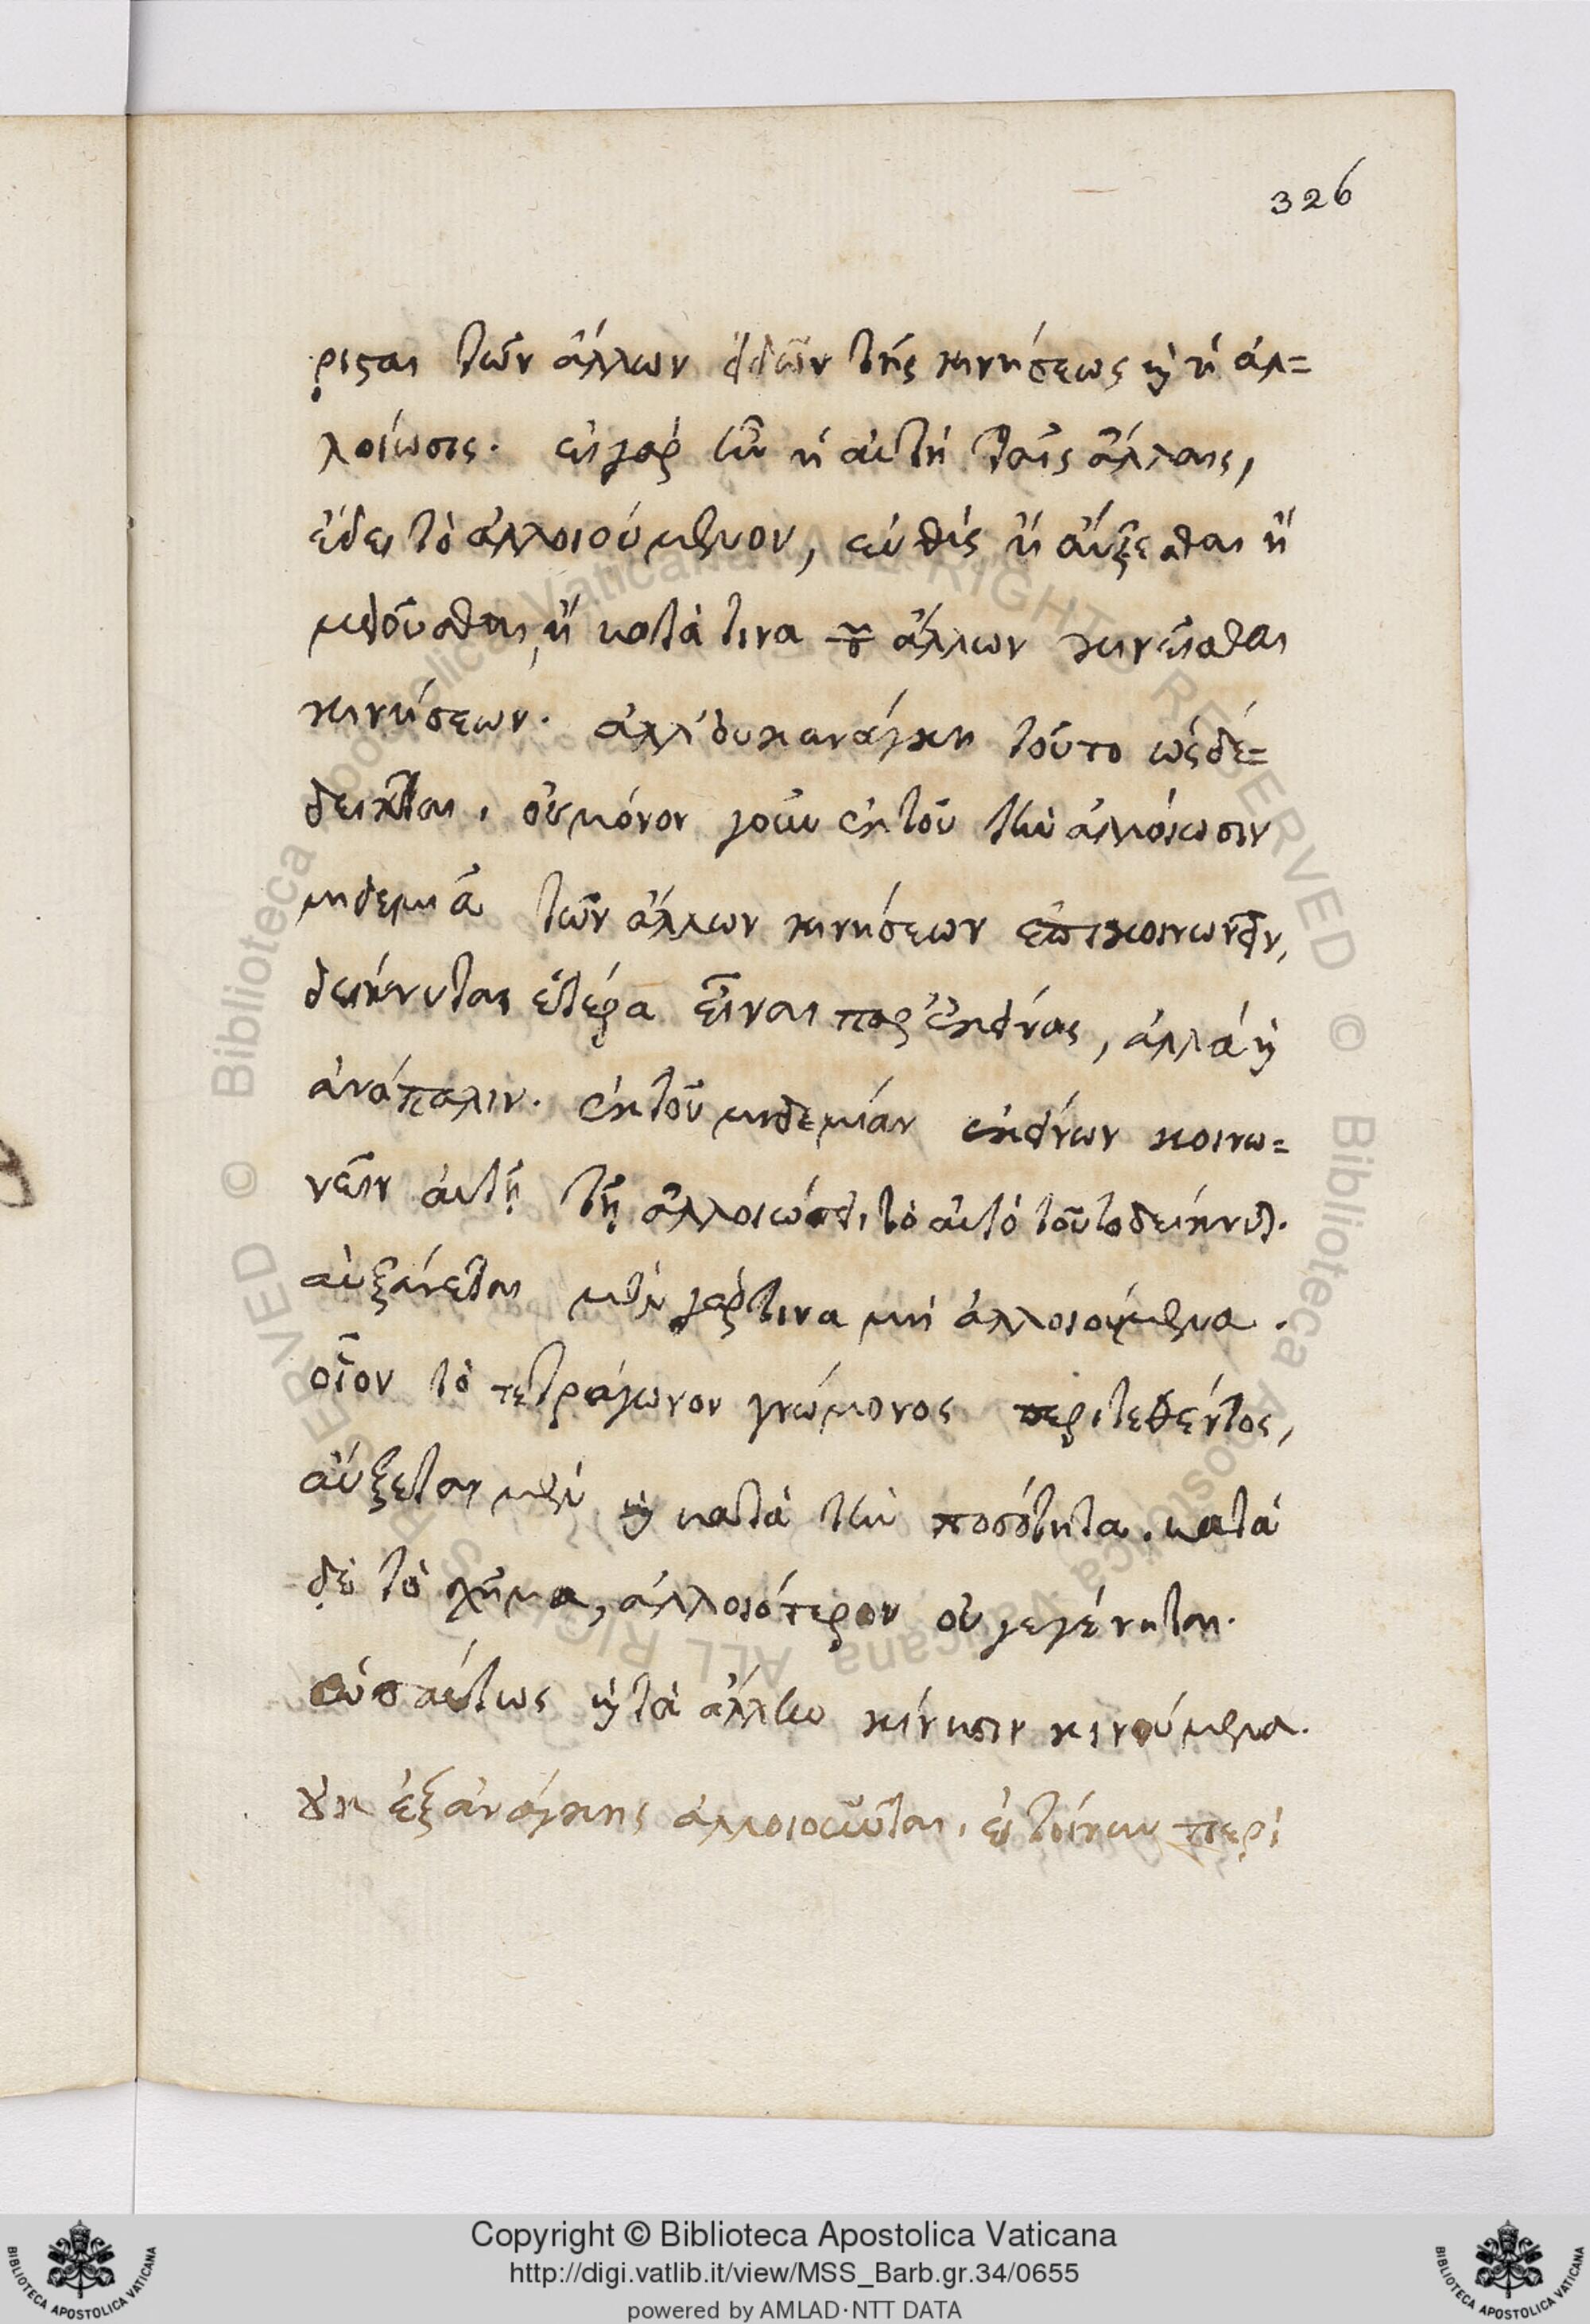 326
ρισται τῶν ἄλλων εἰδῶν τῆς κινήσεως καὶ ἡ ἀλ=
λοίωσις. εἰ γὰρ ἦν ἡ αὐτὴ ταῖς ἄλλαις,
ἔδει τὸ ἀλλοιούμενον, εὐθὺς ἢ αὔξεσθαι ἢ
μειοῦσθαι, ἢ κατά τινα τῶν ἄλλων κινεῖσθαι
κινήσεων. ἀλλ' οὐκ ἀνάγκη τοῦτο ὡς δέ=
δεικται. οὐ μόνον γοῦν ἐκ τοῦ τὴν ἀλλοίωσιν
μηδεμιᾷ τῶν ἄλλων κινήσεων ἐπικοινωνεῖν,
δείκνυται ἑτέρα εἶναι παρ' ἐκείνας, ἀλλὰ καὶ
ἀνάπαλιν. ἐκ τοῦ μηδεμίαν ἐκείνων κοινω=
νεῖν αὐτῇ τῇ ἀλλοιώσει, τὸ αὐτὸ τοῦτο δείκνυται.
αὐξάνεται μὲν γάρ τινα μὴ ἀλλοιούμενα.
οἷον τὸ τετράγωνον γνώμονος περιτεθέντος,
αὔξεται μὲν καὶ κατὰ τὴν ποσότητα. κατὰ
δὲ τὸ σχῆμα, ἀλλοιότερον οὐ γεγένηται.
ὡσαύτως καὶ τὰ ἄλλην κίνησιν κινούμενα.
οὐκ ἐξ ἀνάγκης ἀλλοιοῦνται. εἰ τοίνυν περὶ
Copyright © Biblioteca Apostolica Vaticana
http://digi.vatlib.it/view/MSS_Barb.gr.34/0655
powered by AMLAD·NTT DATA